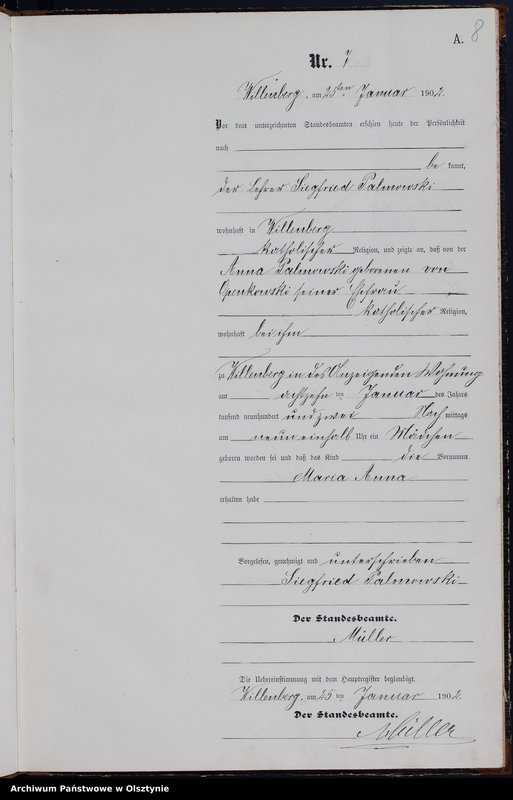 A. 8
Nr. 7
Willenberg, am 25ten Januar 1902.
Vor dem unterzeichneten Standesbeamten erschien heute der Persönlichkeit
nach
be kannt,
der Lehrer Siegfried Palmowski
wohnhaft in Willenberg
katholischer Religion, und zeigte an, daß von der
Anna Palmowski geborenen von
Openkowski seiner Ehefrau
katholischer Religion,
wohnhaft bei ihm
zu Willenberg in des Anzeigenden Wohnung
am achtzehn ten Januar des Jahres
tausend neunhundert und zwei Nach mittags
um neun einhalb Uhr ein Mädchen
geboren worden sei und daß das Kind die Vornamen
Maria Anna
erhalten habe
Vorgelesen, genehmigt und unterschrieben
Siegfried Palmowski
Der Standesbeamte.
Müller
Die Uebereinstimmung mit dem Hauptregister beglaubigt.
Willenberg, am 25 ten Januar 1902.
Der Standesbeamte.
Müller
Archiwum Państwowe w Olsztynie